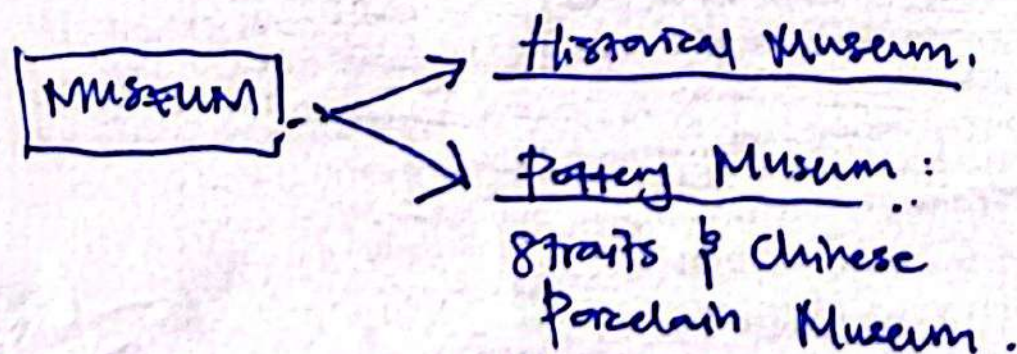 MUSEUM
Historical Museum.
Pottery Museum:
Straits & Chinese
Porcelain Museum.